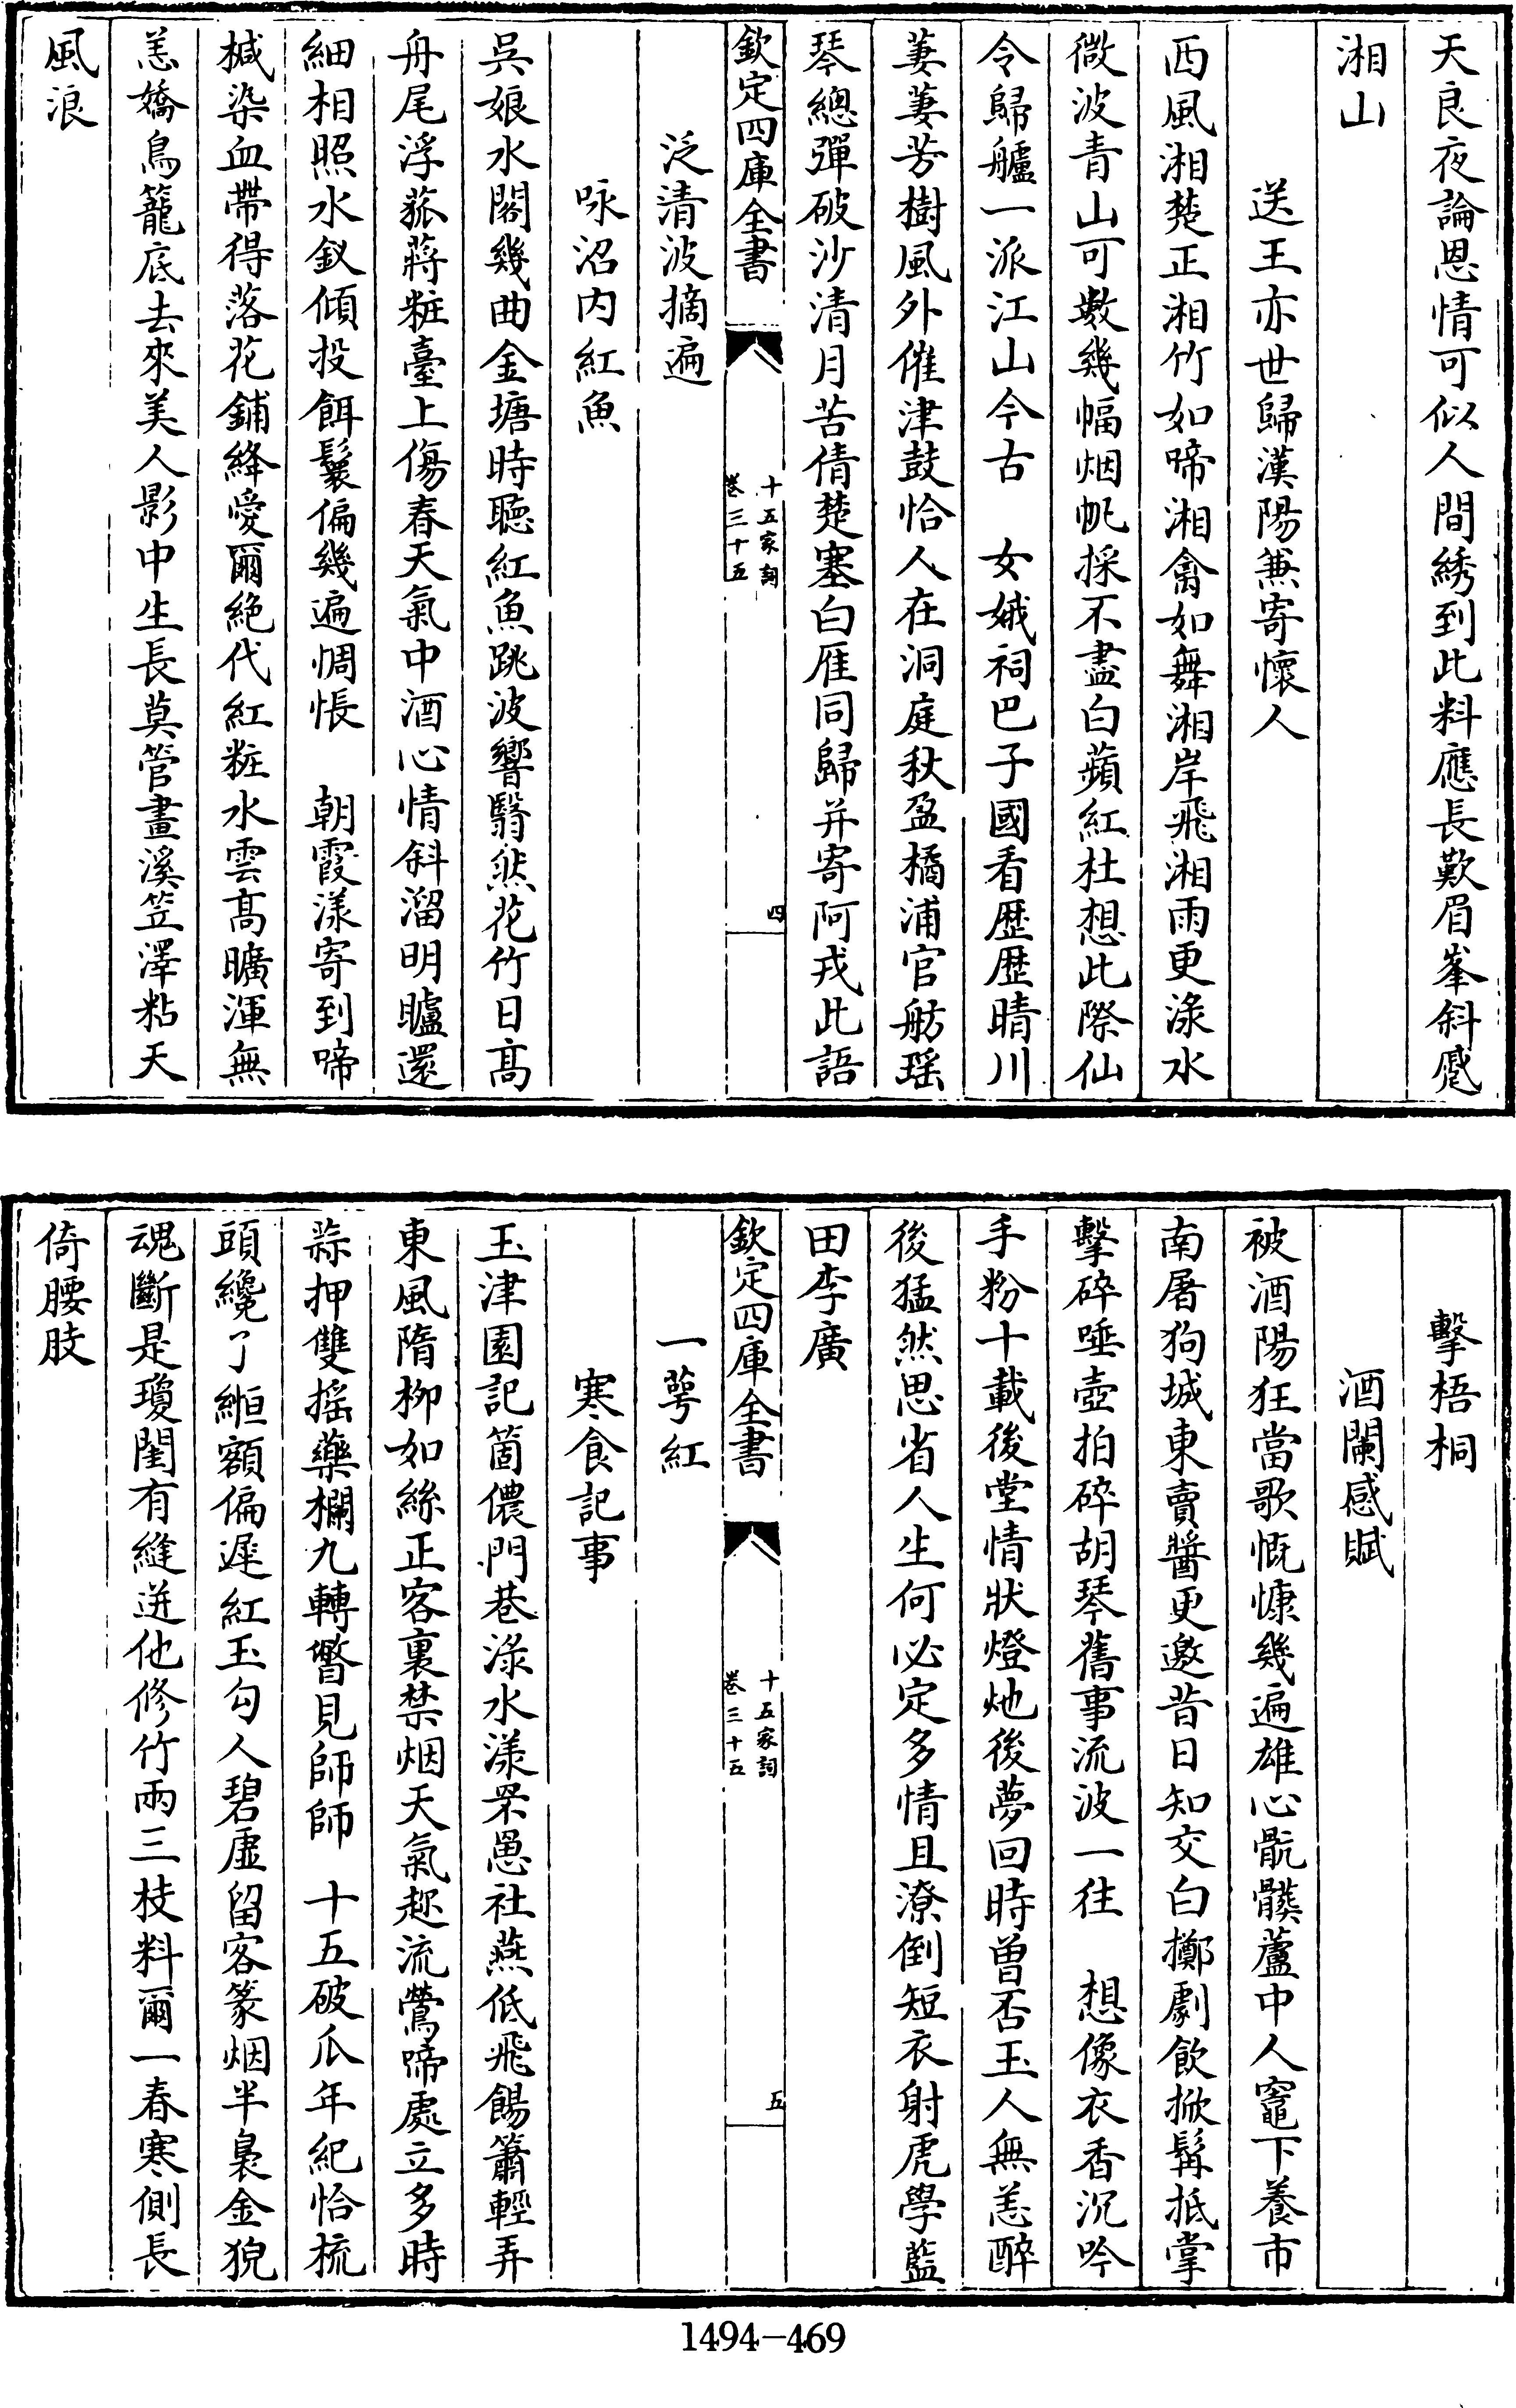 天良夜論恩情可似人間綉到此料應長歎眉峯斜蹙
湘山
送王亦世歸漢陽兼寄懷人
西風湘楚正湘竹如啼湘禽如舞湘岸飛湘雨更淥水
微波青山可數幾幅烟帆採不盡白蘋紅杜想此際仙
令歸艫一派江山今古　女娥祠巴子國看歷歷晴川
萋萋芳樹風外催津鼓恰人在洞庭秋盈橘浦官舫瑶
琴總彈破沙清月苦倩楚塞白雁同歸并寄阿戎此語
欽定四庫全書
十五家詞
卷三十五
四
泛清波摘遍
咏沼内紅魚
吳娘水閣幾曲金塘時聽紅魚跳波響翳然花竹日高
舟尾浮菰蔣粧臺上傷春天氣中酒心情斜溜明矑還
細相照水釵傾投餌鬟偏幾遍惆悵　朝霞漾寄到啼
椷染血帶得落花鋪絳愛爾絶代紅粧水雲高曠渾無
恙嬌鳥籠底去來美人影中生長莫管畫溪笠澤粘天
風浪
擊梧桐
酒闌感賦
被酒陽狂當歌慨慷幾遍雄心骯髒蘆中人竈下養市
南屠狗城東賣醬更邀昔日知交白擲劇飲掀髯抵掌
擊碎唾壺拍碎胡琴舊事流波一往　想像衣香沉吟
手粉十載後堂情狀燈灺後夢回時曽否玉人無恙醉
後猛然思省人生何必定多情且潦倒短衣射虎學藍
田李廣
欽定四庫全書
十五家詞
卷三十五
五
一萼紅
寒食記事
玉津園記箇儂門巷淥水漾罘罳社燕低飛餳簫輕弄
東風隋柳如絲正客裏禁烟天氣趂流鶯啼處立多時
蒜押雙摇藥欄九轉瞥見師師　十五破瓜年紀恰梳
頭纔了緪額偏遲紅玉勾人碧虛留客篆烟半裊金猊
魂斷是瓊閨有縫迸他修竹兩三枝料爾一春寒側長
倚腰肢
1494—469